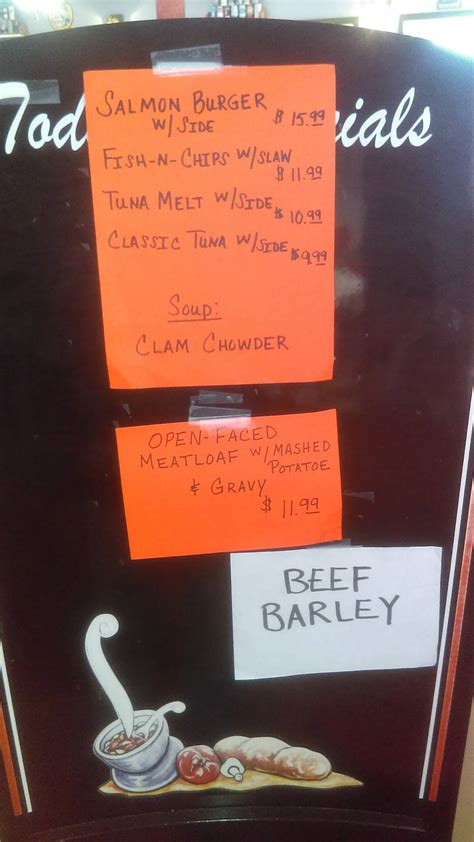 Tod cials
SALMON BURGER
W/SIDE $15.99
FISH-N-CHIPS W/SLAW
$11.99
TUNA MELT W/SIDE $10.99
CLASSIC TUNA W/SIDE $9.99
SOUP:
CLAM CHOWDER
OPEN-FACED
MEATLOAF W/MASHED
POTATOE
& GRAVY
$11.99
BEEF
BARLEY